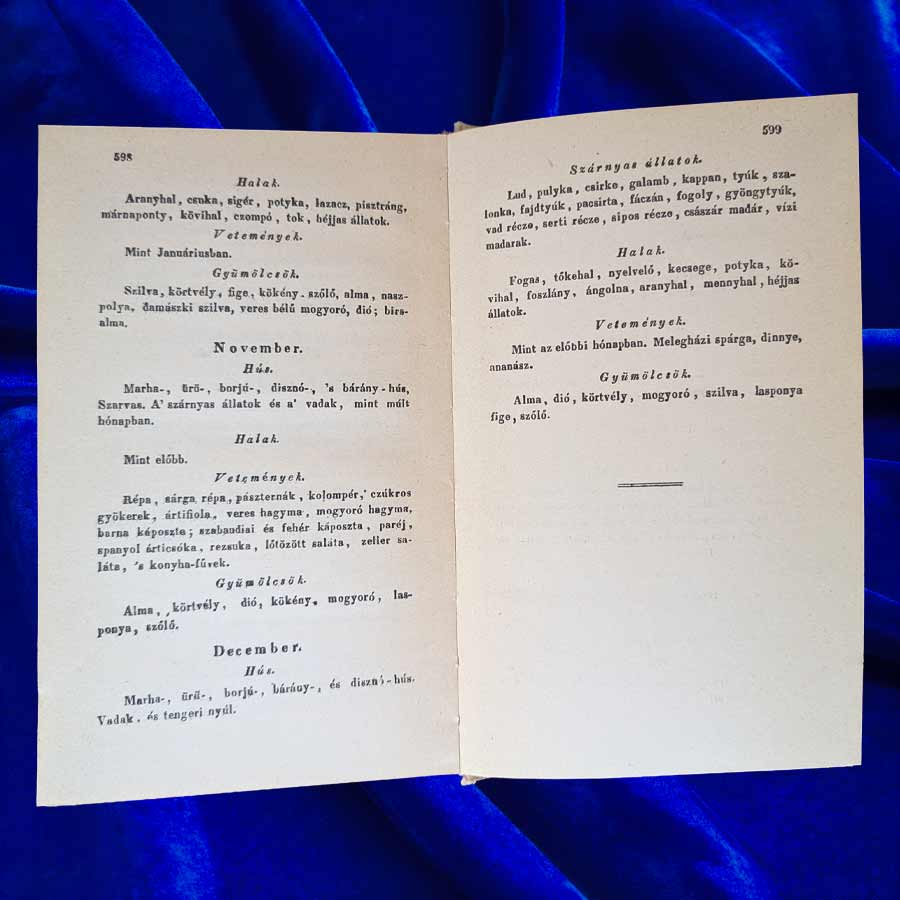 598
Halak.
Aranyhal, csuka, sigér, potyka, lazacz, pisztráng,
márnaponty, kövihal, czompó, tok, héjjas állatok.
Vetemények.
Mint Januáriusban.
Gyümölcsök.
Szilva, körtvély, fige, kökény. szőlő, alma, nasz-
polya, damászki szilva, veres bélű mogyoró, dió; birs-
alma.
November.
Hús.
Marha-, ürü-, borjú-, disznó-, 's bárány-hús,
Szarvas. A' szárnyas állatok és a' vadak, mint múlt
hónapban.
Halak.
Mint előbb.
Vetemények.
Répa, sárga répa, pászternák, kolompér, czúkros
gyökerek, ártifiola, veres hagyma, mogyoró hagyma,
barna káposzta; szabaudiai és fehér káposzta, paréj,
spanyol árticsóka, rezsuka, lőtözött saláta, zeller sa-
láta, 's konyha-fűvek.
Gyümölcsök.
Alma, körtvély, dió, kökény, mogyoró, las-
ponya, szőlő.
December.
Hús.
Marha-, ürü-, borjú-, bárány-, és disznó-hús.
Vadak, és tengeri nyúl.
599
Szárnyas állatok.
Lud, pulyka, csirke, galamb, kappan, tyúk, sza-
lonka, fajdtyúk, pacsirta, fáczán, fogoly, gyöngytyúk,
vad récze, serti récze, sipos récze, császár madár, vízi
madarak.
Halak.
Fogas, tőkehal, nyelvelő, kecsege, potyka, kö-
vihal, foszlány, ángolna, aranyhal, mennyhal, héjjas
állatok.
Vetemények.
Mint az előbbi hónapban. Melegházi spárga, dinnye,
ananász.
Gyümölcsök.
Alma, dió, körtvély, mogyoró, szilva, lasponya
fige, szőlő.